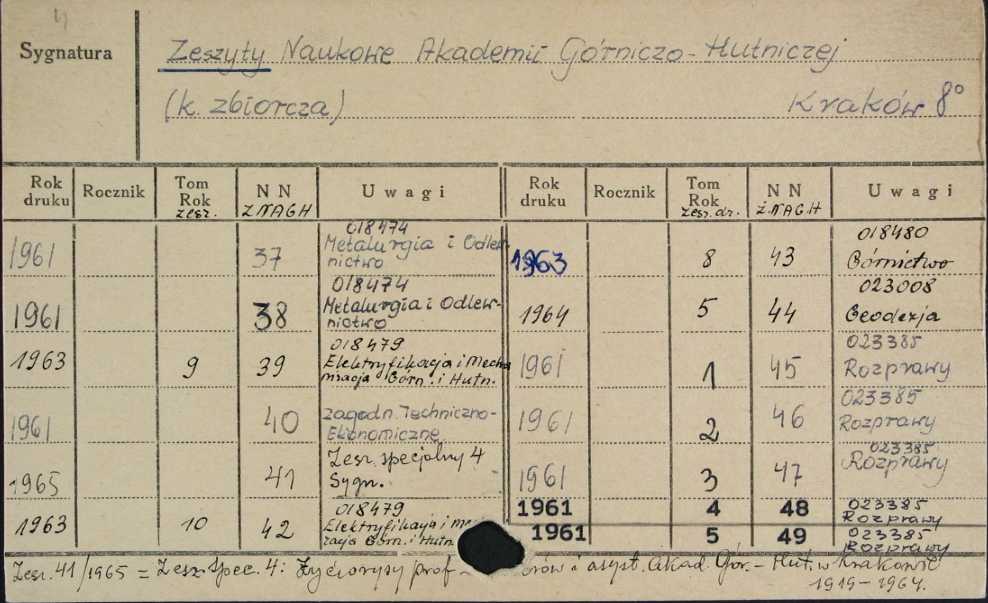 Sygnatura
Zeszyty Naukowe Akademii Górniczo-Hutniczej
(k. zbiorcza) Kraków 8°
Rok druku Rocznik Tom Rok zesz. NN Z NAGH Uwagi
1961 37 018474 Metalurgia i Odlewnictwo
1961 38 018474 Metalurgia i Odlewnictwo
1963 9 39 018479 Elektryfikacja i Mechanizacja Górn. i Hutn.
1961 40 zagadn. Techniczno-Ekonomiczne
1965 41 Zesz. specjalny 4 Sygn.
1963 10 42 018479 Elektryfikacja i Górn. i Hutn
Rok druku Rocznik Tom Rok zesz. dr. NN Ż NAGH Uwagi
1963 8 43 018480 Górnictwo
1964 5 44 023008 Geodezja
1961 1 45 023385 Rozprawy
1961 2 46 023385 Rozprawy
1961 3 47 023385 Rozprawy
1961 4 48 023385 Rozprawy
1961 5 49 023385 Rozprawy
Zesz. 41/1965 = Zesz. spec. 4: Życiorysy prof i asyst. Akad. Gór.-Hut. w Krakowie
1919-1964.